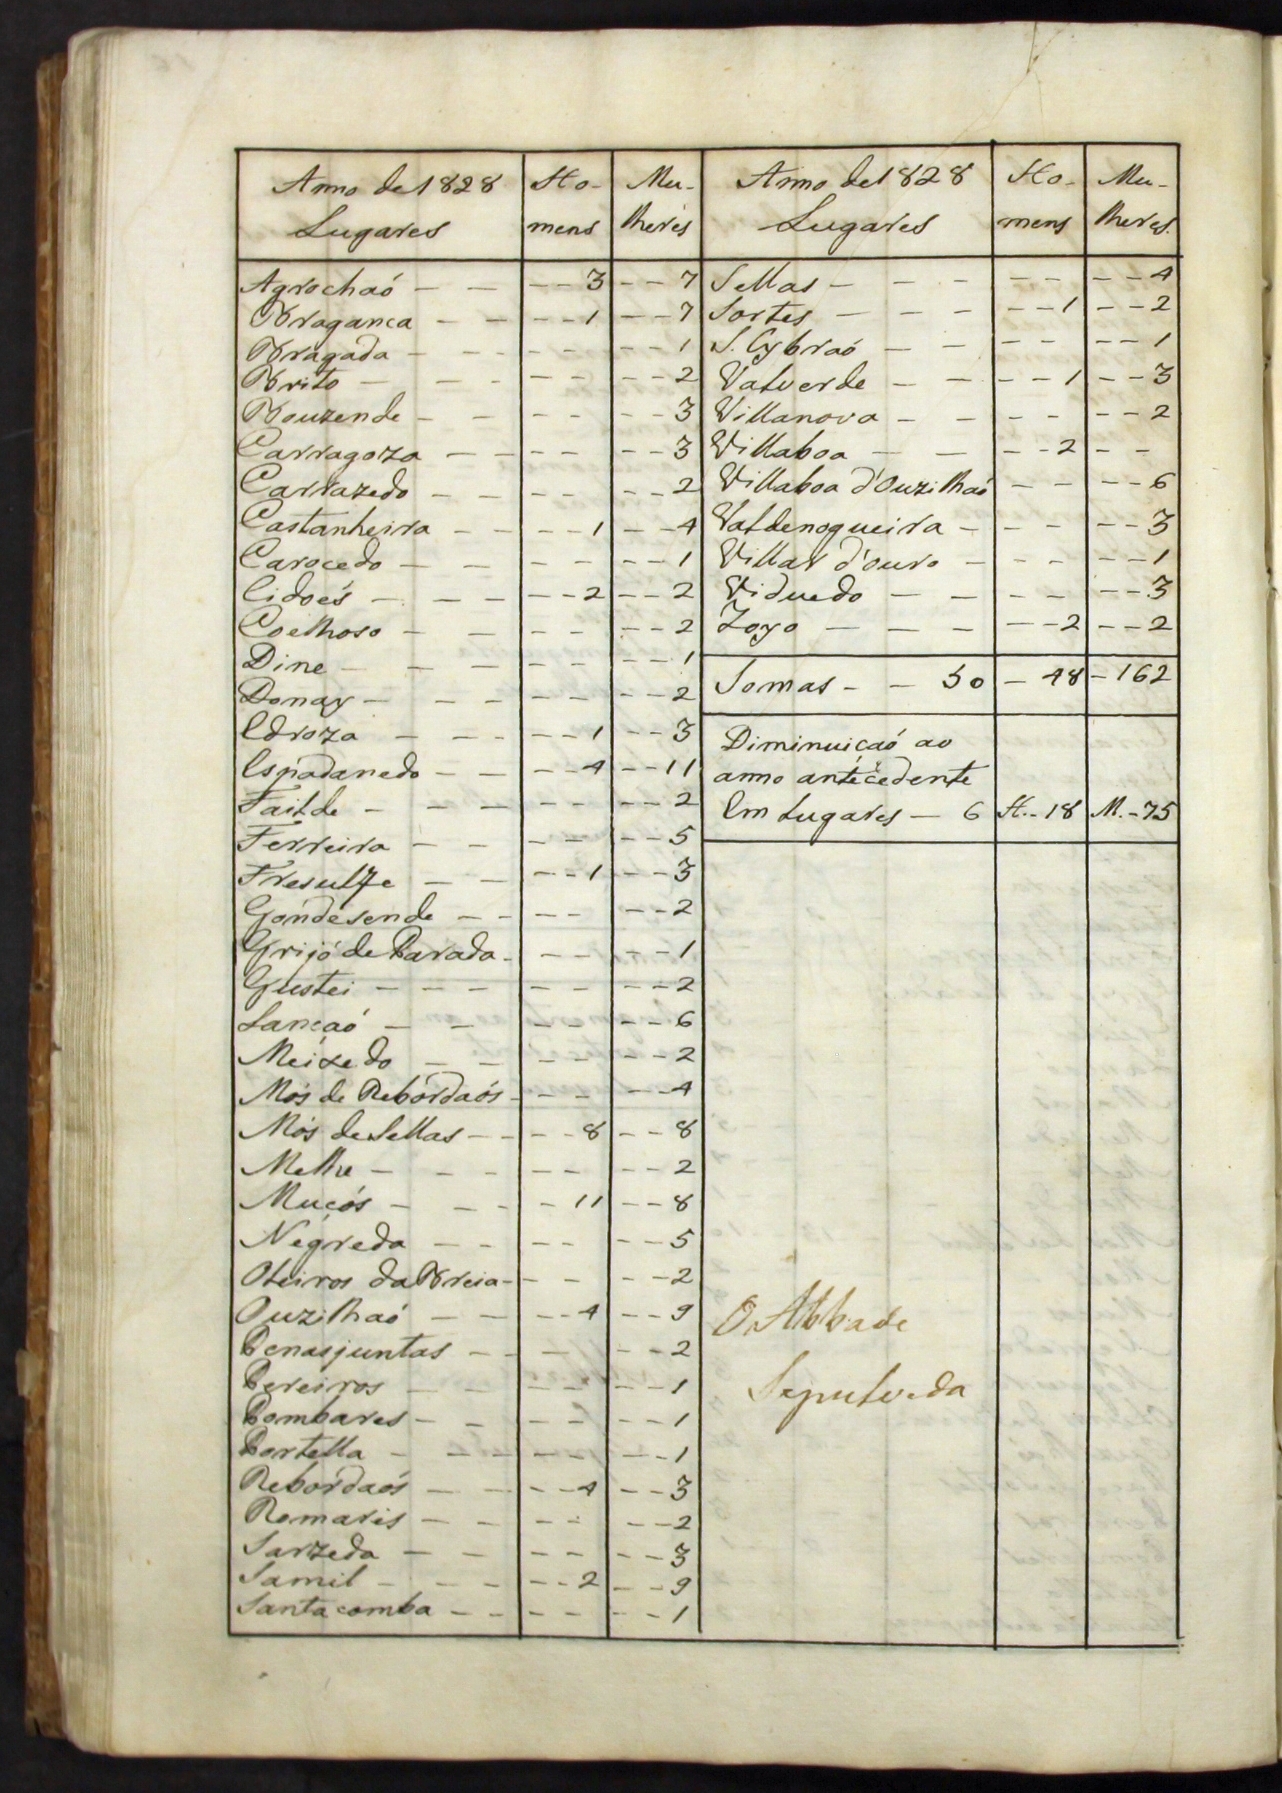 Anno de 1828 Lugares | Ho-mens | Mu-lheres
Agrochaó — — — — 3 — — 7
Bragança — — — — 1 — — 7
Bragada — — — — — — 1
Brito — — — — — — 2
Bouzende — — — — — — 3
Carragoza — — — — — — 3
Carrazedo — — — — — — 2
Castanheira — — — — 1 — — 4
Carocedo — — — — — — 1
Cidoés — — — — 2 — — 2
Coelhoso — — — — — — 2
Dine — — — — — — 1
Donay — — — — — — 2
Edroza — — — — 1 — — 3
Espadanedo — — — — 4 — — 11
Failde — — — — — — 2
Ferreira — — — — — — 5
Fresulfe — — — — 1 — — 3
Gondesende — — — — — — 2
Grijó de Parada — — — — — 1
Gustei — — — — — — 2
Lançaó — — — — — — 6
Meixedo — — — — — — 2
Mós de Rebordaós — — — — — 4
Mós de Sellas — — — — 8 — — 8
Melhe — — — — — — 2
Muçós — — — — 11 — — 8
Negreda — — — — — — 5
Oteiros da Breia — — — — — 2
Ouzilhaó — — — — 4 — — 9
Penasjuntas — — — — — — 2
Pereiros — — — — — — 1
Pombares — — — — — — 1
Portella — — — — — — 1
Rebordaós — — — — 4 — — 3
Romariz — — — — — — 2
Sarzeda — — — — — — 3
Samil — — — — 2 — — 9
Santa comba — — — — — — 1
Anno de 1828 Lugares | Ho-mens | Mu-lheres.
Sellas — — — — — — 4
Sortes — — — — 1 — — 2
S. Cybraó — — — — — — 1
Valverde — — — — 1 — — 3
Villanova — — — — — — 2
Villaboa — — — — 2 — —
Villaboa d'Ouzilhaó — — — — 6
Valdenogueira — — — — — — 3
Villar d'ouro — — — — — — 1
Viduedo — — — — — — 3
Zoyo — — — — 2 — — 2
Somas — — 50 — 48 — 162
Diminuiçaó ao
anno antecedente
Em Lugares — 6 H. - 18 M. - 75
O Abbade
Sepulveda